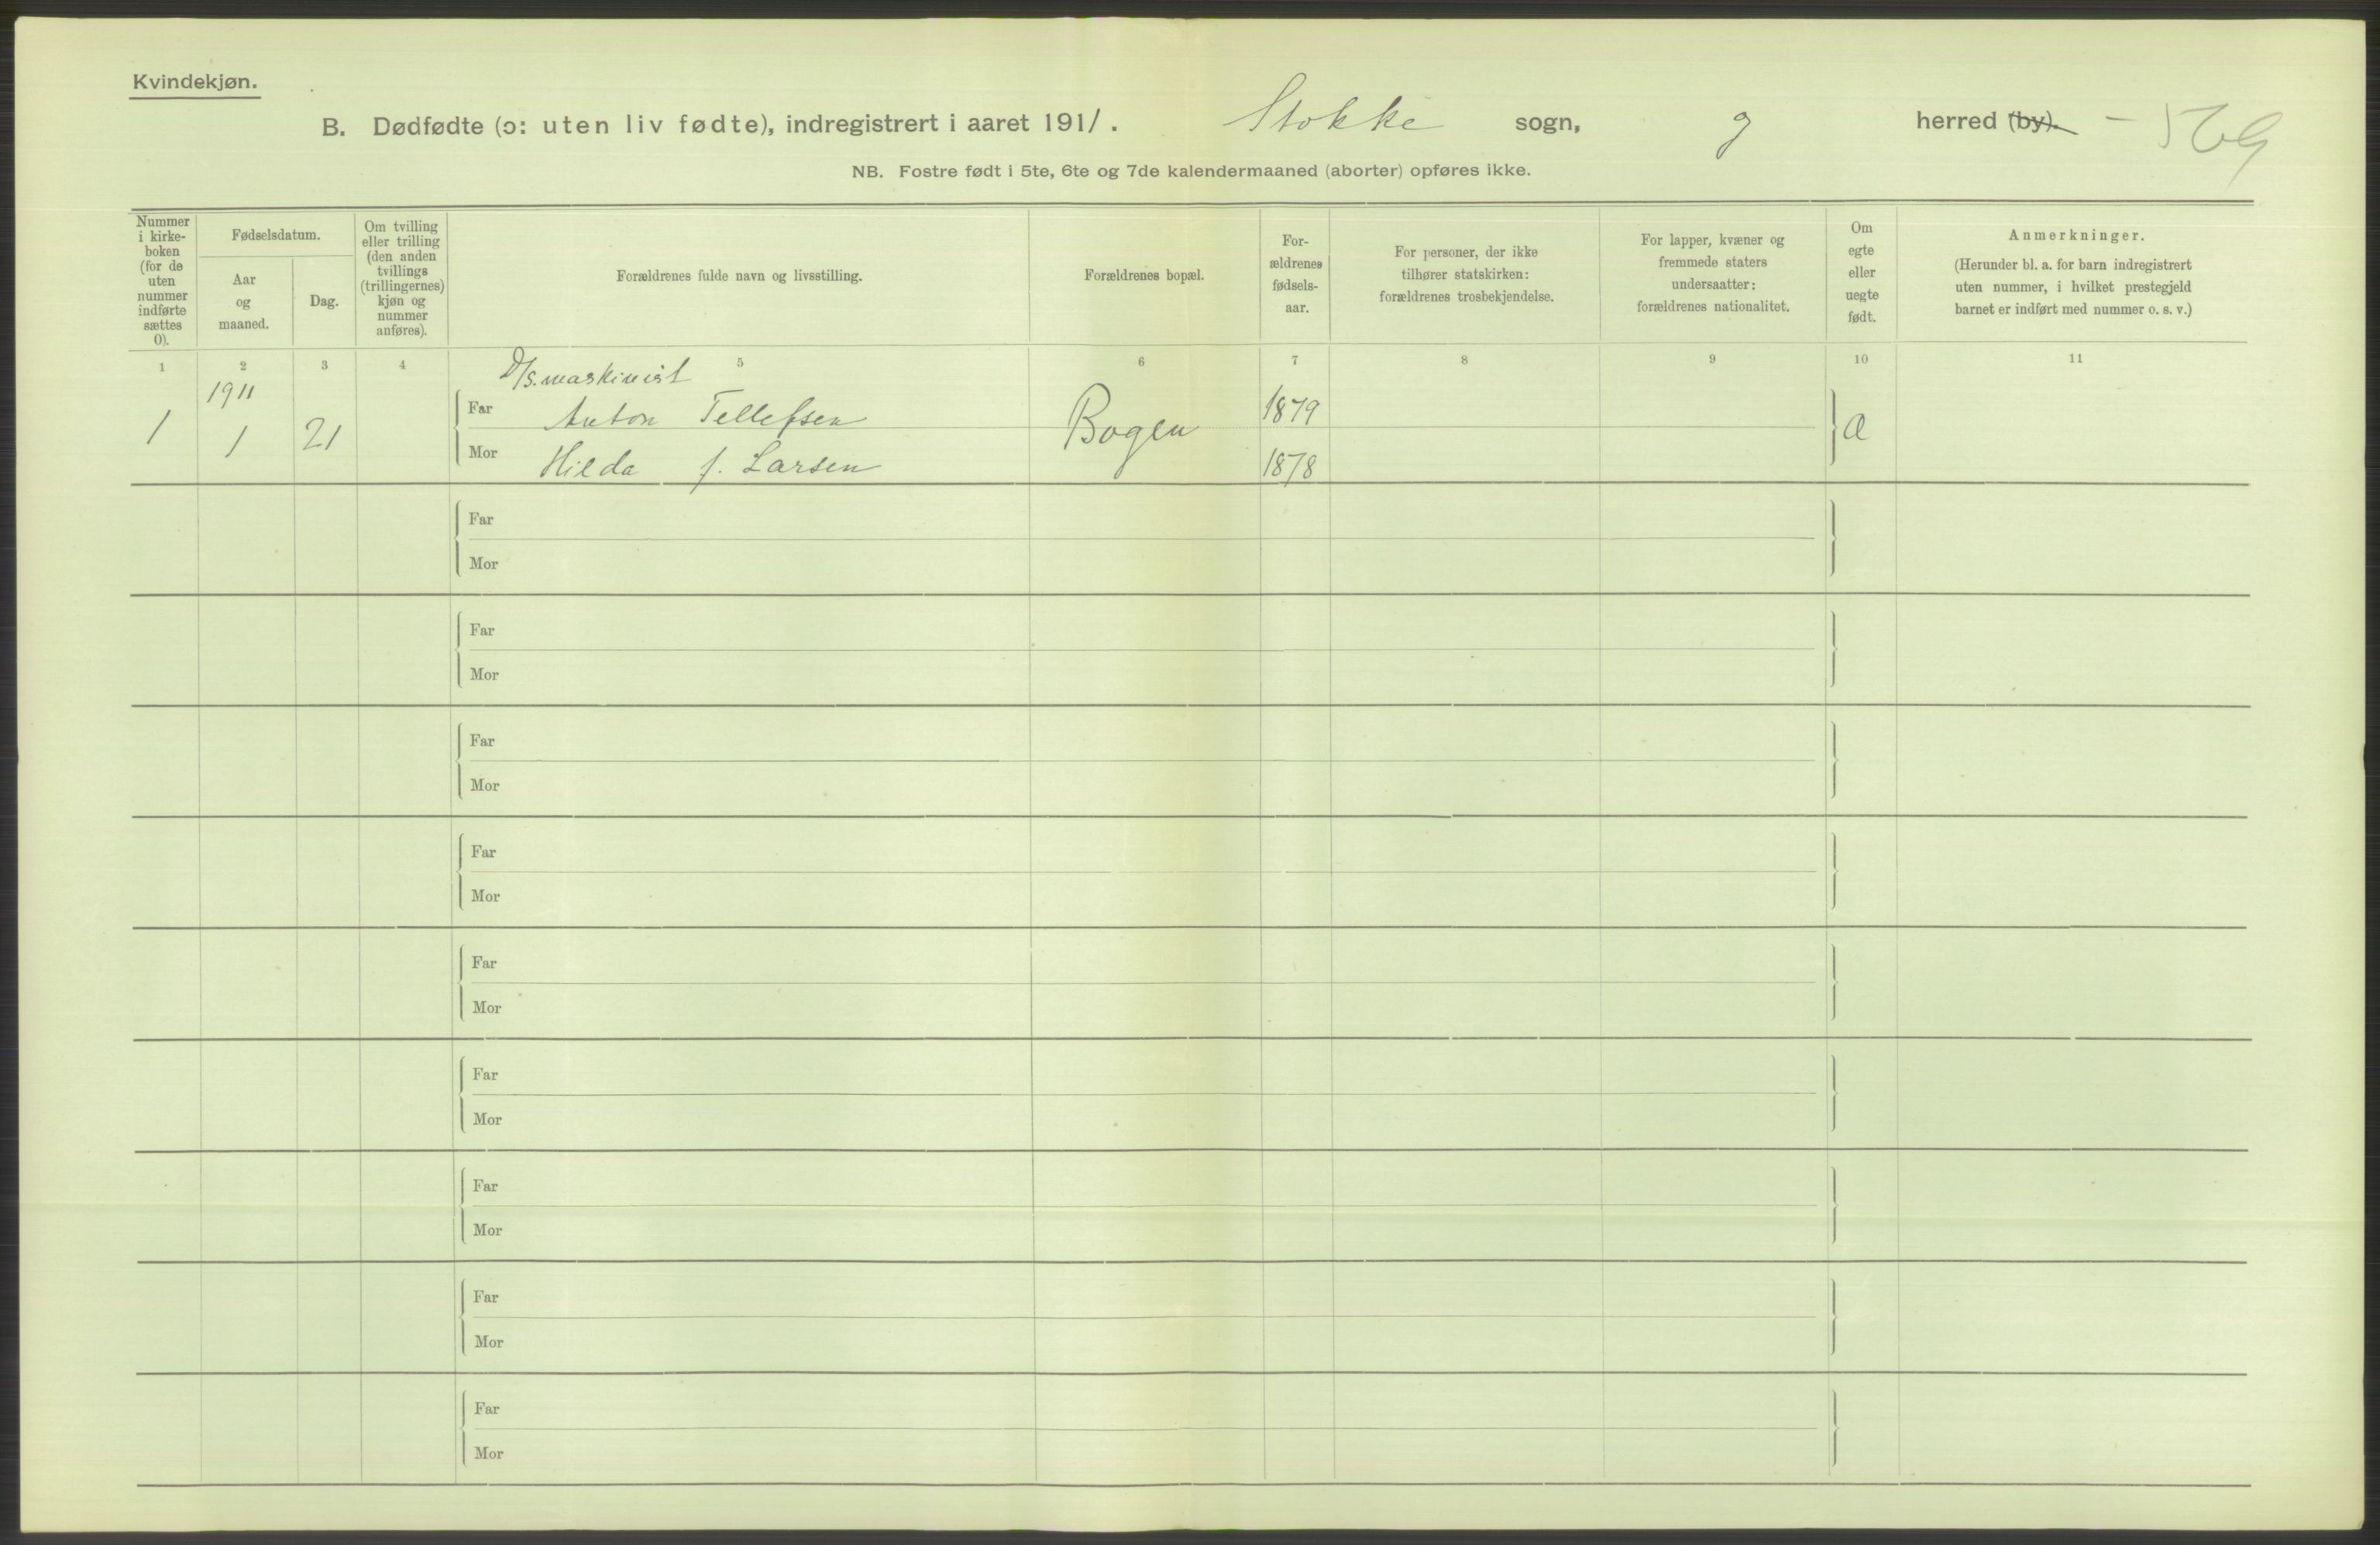 Kvindekjøn.
B. Dødfødte (ɔ: uten liv fødte), indregistrert i aaret 1911. Stokke sogn, g herred (by). - 569
NB. Fostre født i 5te, 6te og 7de kalendermaaned (aborter) opføres ikke.
Nummer
i kirke-
boken
(for de
uten
nummer
indførte
sættes
0).
Fødselsdatum.
Aar
og
maaned.
Dag.
Om tvilling
eller trilling
(den anden
tvillings
(trillingernes)
kjøn og
nummer
anføres).
Forældrenes fulde navn og livsstilling.
Forældrenes bopæl.
For-
ældrenes
fødsels-
aar.
For personer, der ikke
tilhører statskirken:
forældrenes trosbekjendelse.
For lapper, kvæner og
fremmede staters
undersaatter:
forældrenes nationalitet.
Om
egte
eller
uegte
født.
Anmerkninger.
(Herunder bl. a. for barn indregistrert
uten nummer, i hvilket prestegjeld
barnet er indført med nummer o. s. v.)
1 2 3 4 5 6 7 8 9 10 11
1911
D/s. maskinist
Far Anton Tellefsen 1879
1 1 21 Bogen
Mor Hilda f. Larsen 1878
Far
Mor
Far
Mor
Far
Mor
Far
Mor
Far
Mor
Far
Mor
Far
Mor
Far
Mor
Far
Mor